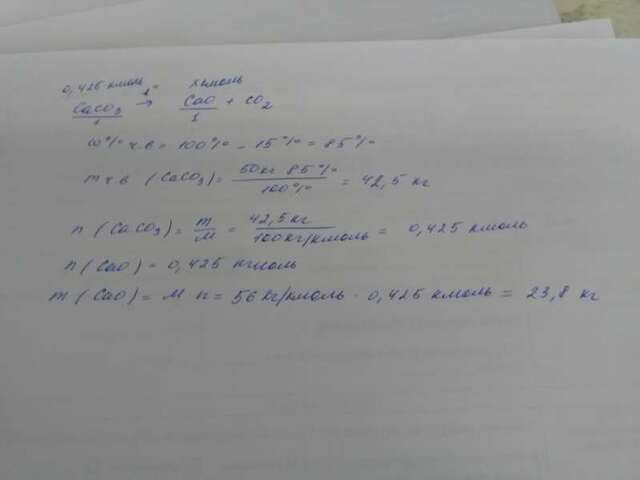 0,425 кмоль t° х кмоль
CaCO3 → CaO + CO2
1 1
ω% ч.в = 100% - 15% = 85%
m ч.в (CaCO3) = 50кг · 85% / 100% = 42,5 кг
n (CaCO3) = m / M = 42,5 кг / 100 кг/кмоль = 0,425 кмоль
n (CaO) = 0,425 кмоль
m (CaO) = M · n = 56 кг/кмоль · 0,425 кмоль = 23,8 кг